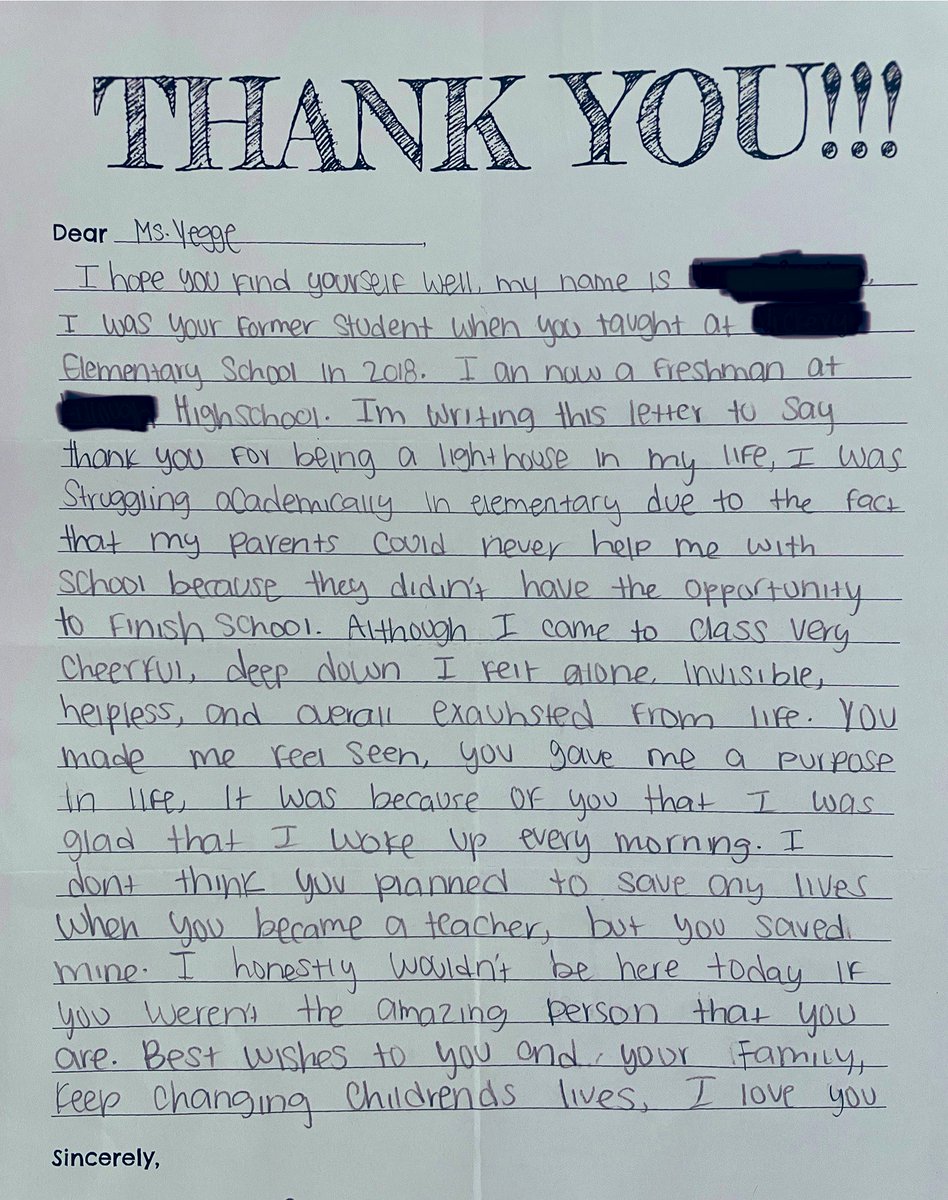 THANK YOU!!!
Dear Ms. Yegge,
I hope you find yourself well, my name is
I was your former student when you taught at
Elementary School in 2018. I an now a freshman at
Highschool. Im writing this letter to say
thank you for being a lighthouse in my life, I was
struggling academically in elementary due to the fact
that my parents could never help me with
school because they didin't have the opportunity
to finish school. Although I came to class very
cheerful, deep down I felt alone, invisible,
helpless, and overall exauhsted from life. You
made me feel seen, you gave me a purpose
in life, It was because of you that I was
glad that I woke up every morning. I
dont think you planned to save any lives
when you became a teacher, but you saved
mine. I honestly wouldn't be here today if
you weren't the amazing person that you
are. Best wishes to you and your family,
keep changing childrends lives, I love you
Sincerely,